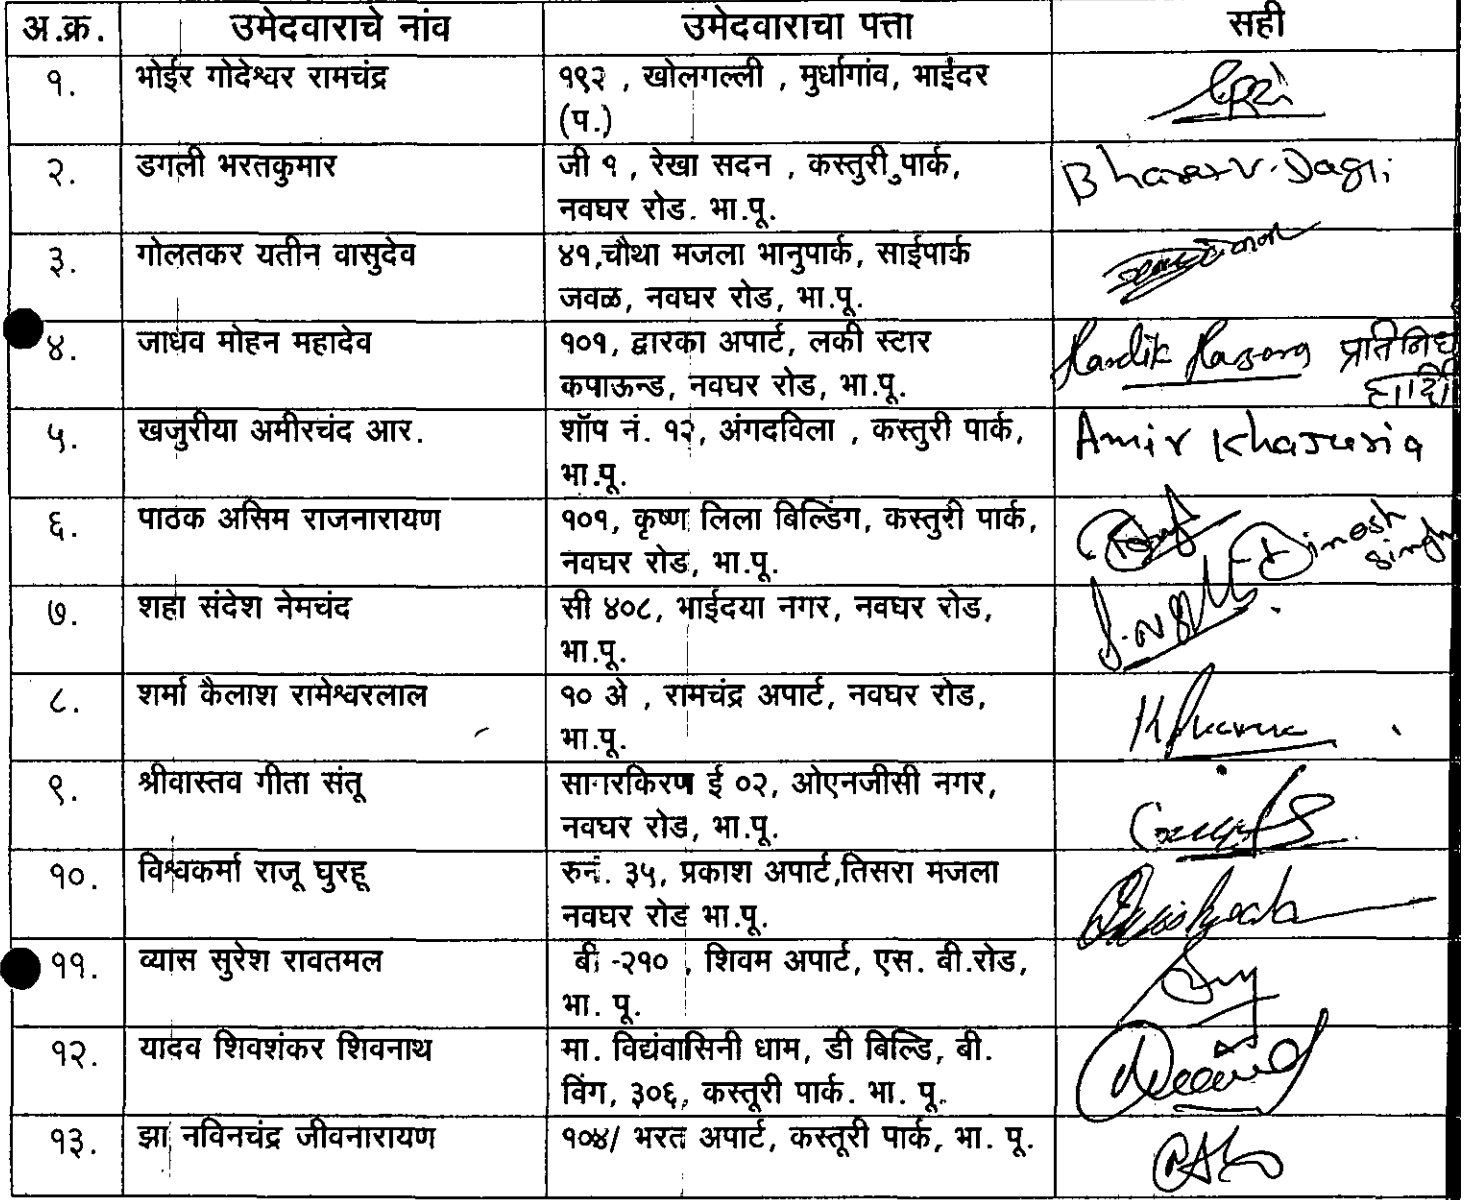 अ.क्र. उमेदवाराचे नांव उमेदवाराचा पत्ता सही
१. भोईर गोदेश्वर रामचंद्र १९२ , खोलगल्ली , मुर्धागांव, भाईंदर
(प.)
२. डगली भरतकुमार जी १ , रेखा सदन , कस्तुरी पार्क, Bharat V. Dagli
नवघर रोड. भा.पू.
३. गोलतकर यतीन वासुदेव ४१,चौथा मजला भानुपार्क, साईपार्क
जवळ, नवघर रोड, भा.पू.
४. जाधव मोहन महादेव १०१, द्वारका अपार्ट, लकी स्टार Hardik प्रतिनिध
कपाऊन्ड, नवघर रोड, भा.पू.
५. खजुरीया अमीरचंद आर. शॉप नं. १२, अंगदविला , कस्तुरी पार्क, Amir Khajuria
भा.पू.
६. पाठक असिम राजनारायण १०१, कृष्ण लिला बिल्डिंग, कस्तुरी पार्क, Dinesh
नवघर रोड, भा.पू. Singh
७. शहा संदेश नेमचंद सी ४०८, भाईदया नगर, नवघर रोड,
भा.पू.
८. शर्मा कैलाश रामेश्वरलाल १० अे , रामचंद्र अपार्ट, नवघर रोड,
भा.पू.
९. श्रीवास्तव गीता संतू सागरकिरण ई ०२, ओएनजीसी नगर,
नवघर रोड, भा.पू.
१०. विश्वकर्मा राजू घुरहू रुनं. ३५, प्रकाश अपार्ट,तिसरा मजला
नवघर रोड भा.पू.
११. व्यास सुरेश रावतमल बी -२१० , शिवम अपार्ट, एस. बी.रोड,
भा. पू.
१२. यादव शिवशंकर शिवनाथ मा. विद्यंवासिनी धाम, डी बिल्डि, बी.
विंग, ३०६, कस्तूरी पार्क. भा. पू.
१३. झा नविनचंद्र जीवनारायण १०४/ भरत अपार्ट, कस्तूरी पार्क, भा. पू.